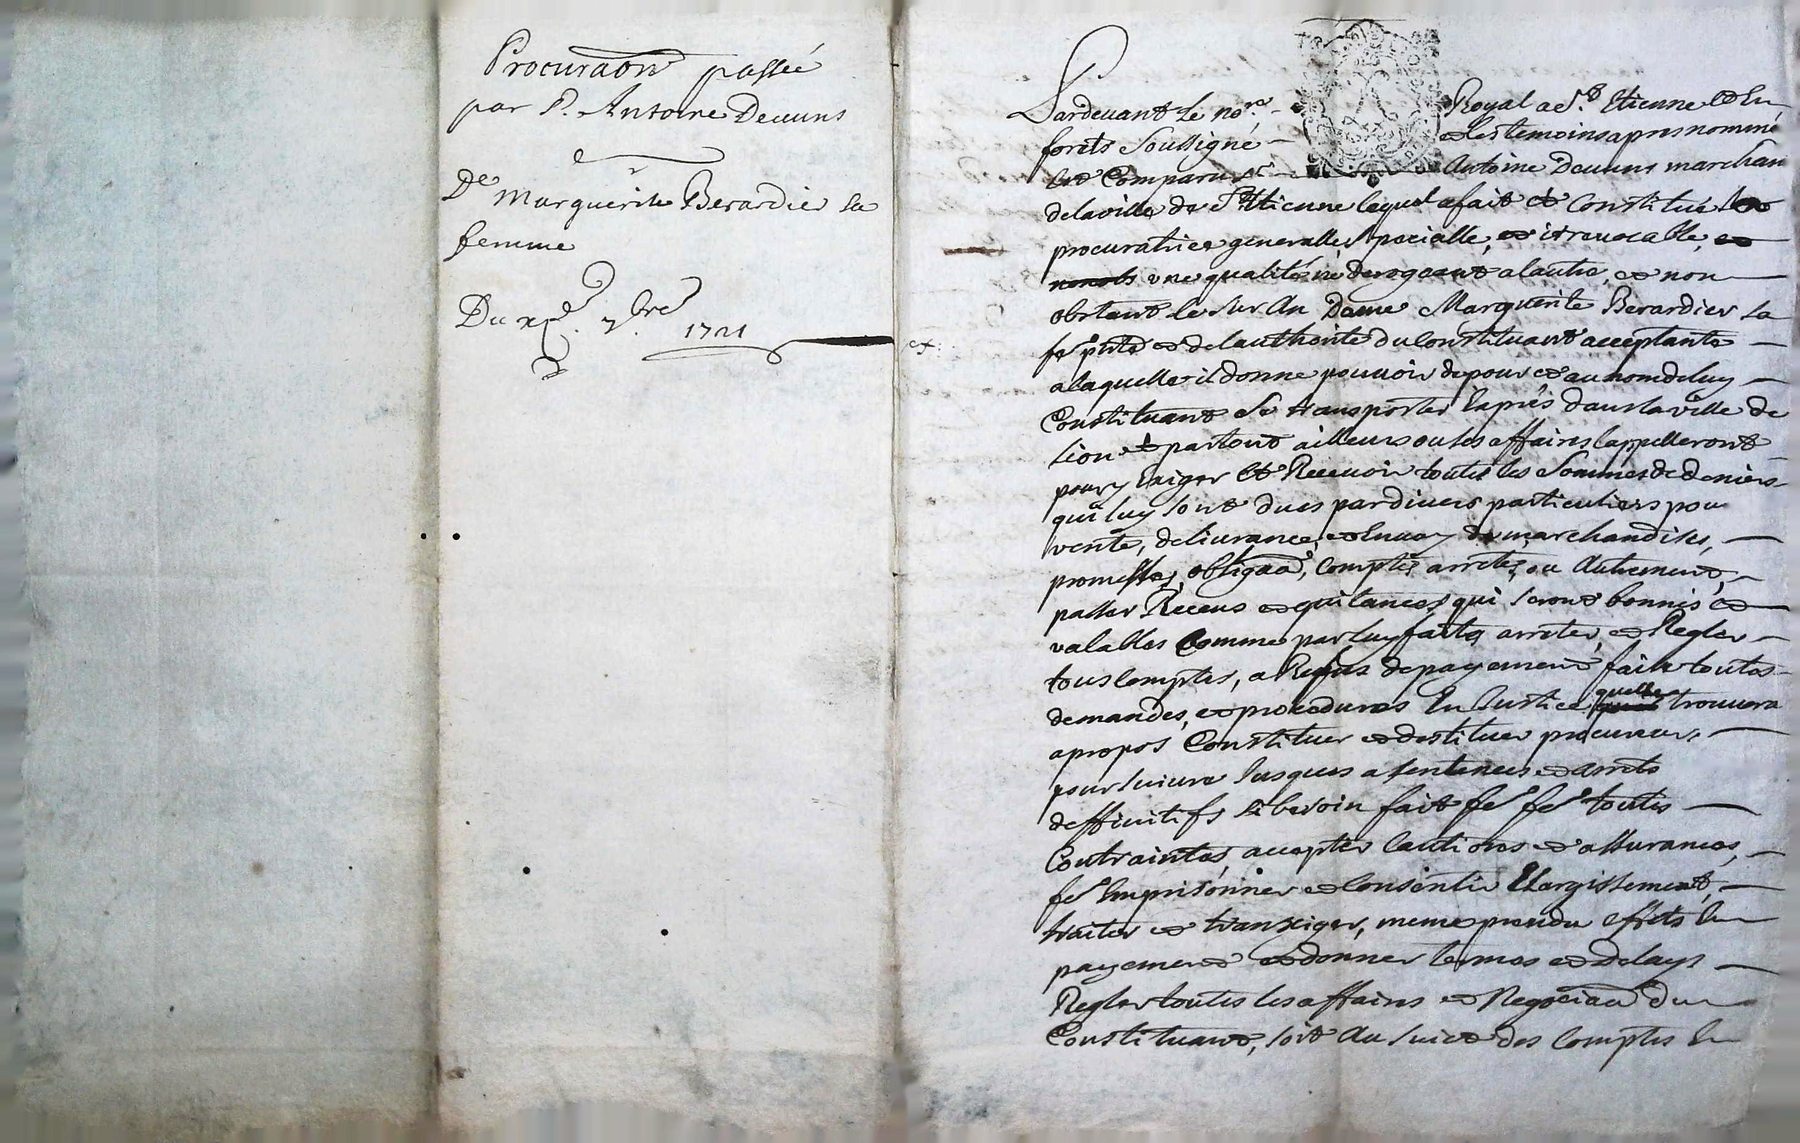 Procuraon passée
par Sr. Antoine Deuuns
De Marguerite Berardier sa
femme
Du xe. 7bre
1721
Pardeuant le nore. Royal a St. Etienne et En
forets Soussigné et les temoins apres nommé
est Comparu sr. Antoine Deuuns marchan
de la ville de St Etienne lequel a fait et Constitué
procuratrice generalle, specialle, et irreuocable,
une qualité ne derogeant a lautre, et non
obstant le sur an Dame Marguerite Berardier sa
fe pnte et de lauthorité du Constituant acceptante
a laquelle il donne pouuoir de pour et au nom de luy
Constituant Se transporter Expres dans la ville de
Lion et partout ailleurs ou ses affaires lappelleront
pour y Exiger et Receuoir toutes les Sommes de deniers
qui luy sont dues par diuers particuliers pour
vente, deliurance, et Enuoy de marchandises,
promesses, obligaaõ, Comptes arretes, ou Autrement,
passer Receus et quitances qui seront bonnes et
valables Comme par luy faite, arreter, et Regler
tous Comptes, a Refus de payement faire toutes
demandes, et procedures En Justice quelle trouuera
apropos Constituer et destituer procureurs,
poursuiure Jusques a sentences et arrets
deffinitifs si besoin fait fe fe toutes
Contraintes, accepter Cautions et assurances,
fe Emprisonner et Consentir Elargissement,
traiter et tranxiger, meme prendre effets En
payement et donner termes et Delays
Regler toutes les affaires et Negociaõ du
Constituant, soit Au suiet des Comptes En